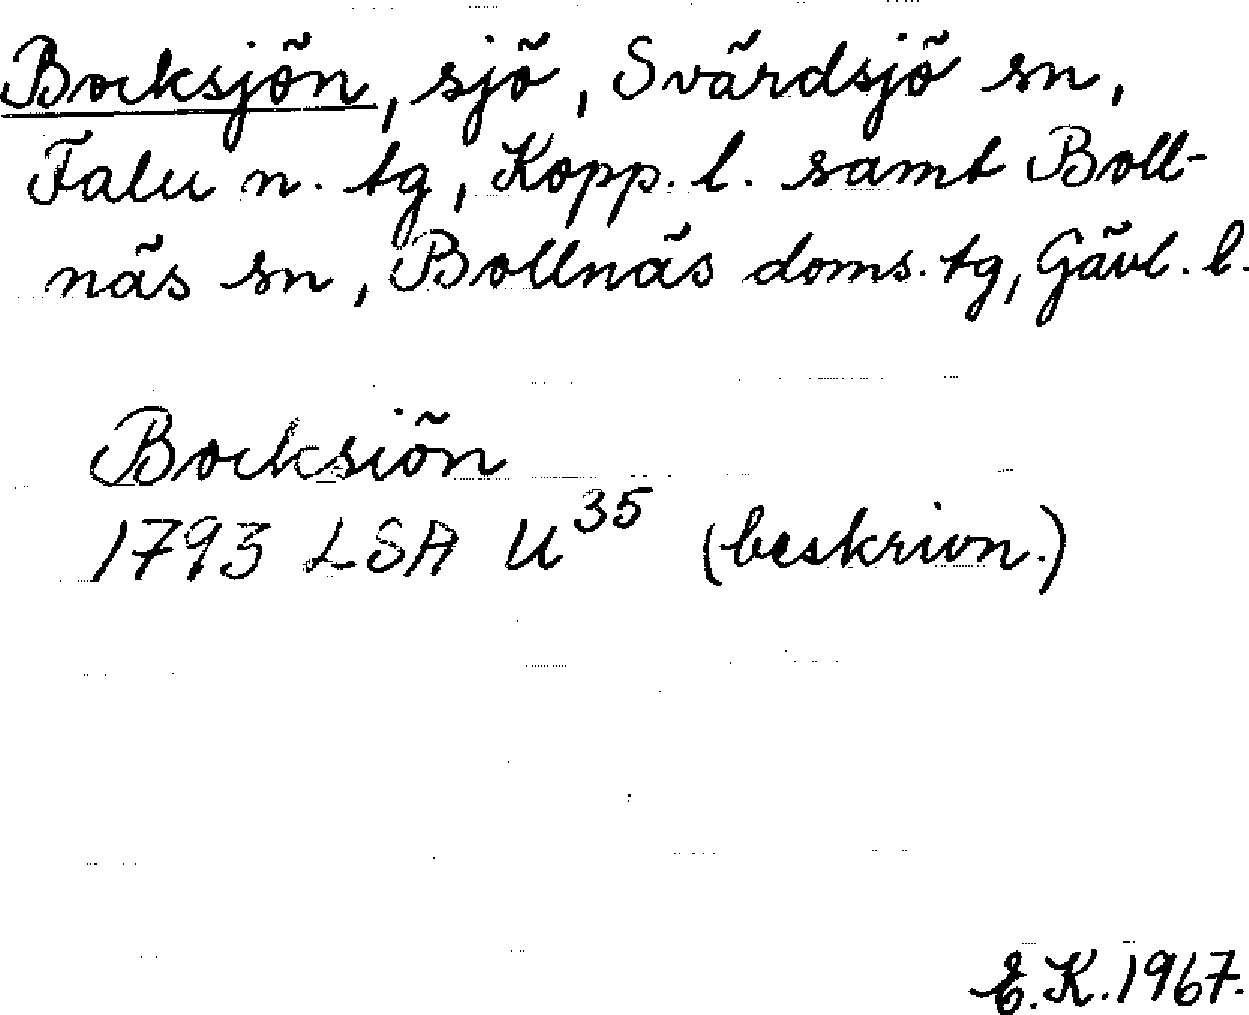 Bocksjön, sjö, Svärdsjö sn,
Falu n. tg, Kopp. l. samt Boll-
näs sn, Bollnäs doms. tg, Gävl. l.
Bocksiön
1793 LSA U³⁵ (beskrivn.)
E.K. 1967.